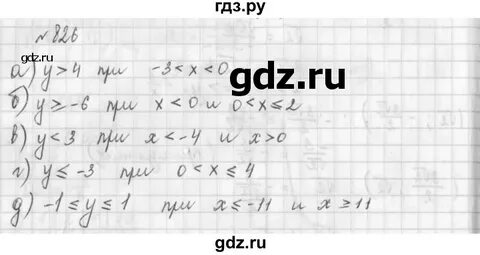 гдз.ру
№ 826
а) y > 4 при -3 < x < 0
б) y ≥ -6 при x < 0 и 0 < x ≤ 2
в) y < 3 при x < -4 и x > 0
г) y ≤ -3 при 0 < x ≤ 4
д) -1 ≤ y ≤ 1 при x ≤ -11 и x ≥ 11
gdz.ru
gdz.ru
gdz.ru
gdz.ru
gdz.ru